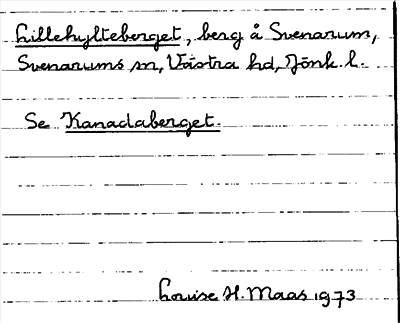 Lillehylteberget, berg å Svenarum,
Svenarums sn, Västra hd, Jönk. l.
Se Kanadaberget.
Louise H. Maas 1973